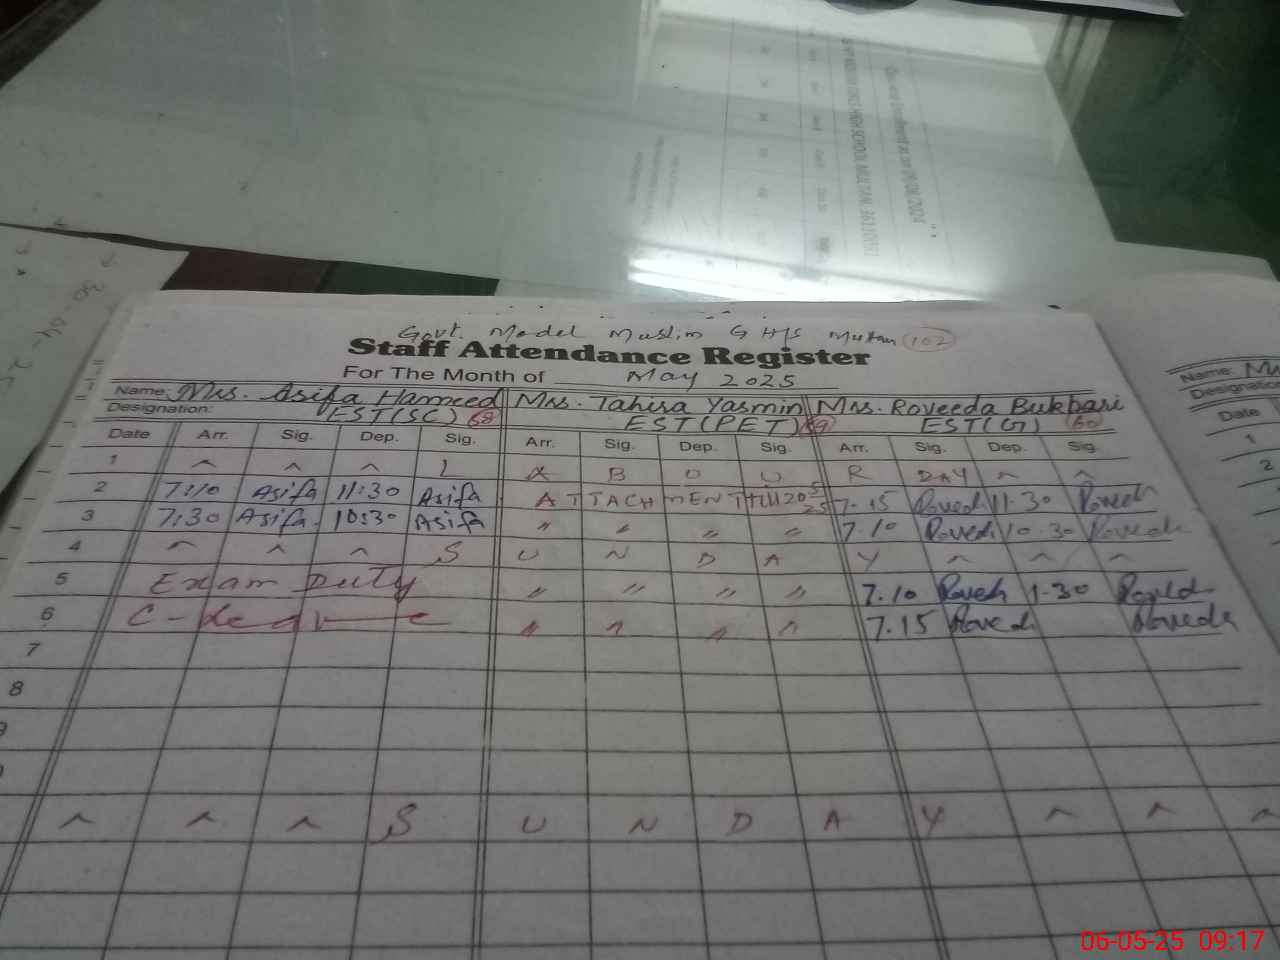 Govt. Model Muslim G H/S Multan 102
Staff Attendance Register
For The Month of May 2025
Name: Mrs. Asifa Hameed Mrs. Tahira Yasmin Mrs. Roveeda Bukhari
Designation: EST(SC) 58 EST(PET) 59 EST(G) 60
Date Arr. Sig. Dep. Sig. Arr. Sig. Dep. Sig. Arr. Sig. Dep. Sig.
1 L A B O U R DAY
2 7:10 Asifa 11:30 Asifa ATTACHMENT 7.15 Roveed 11.30 Roveeh
3 7:30 Asifa 10:30 Asifa " " " " 7.10 Roveed 10.30 Roveeda
4 S U N D A Y
5 Exam Duty " " " " 7.10 Roveeh 1.30 Roveed
6 C-leave " " " " 7.15 Roveed Roveeda
7
8
S U N D A Y
Name: M
Designation
Date
1
2
3
06-05-25 09:17